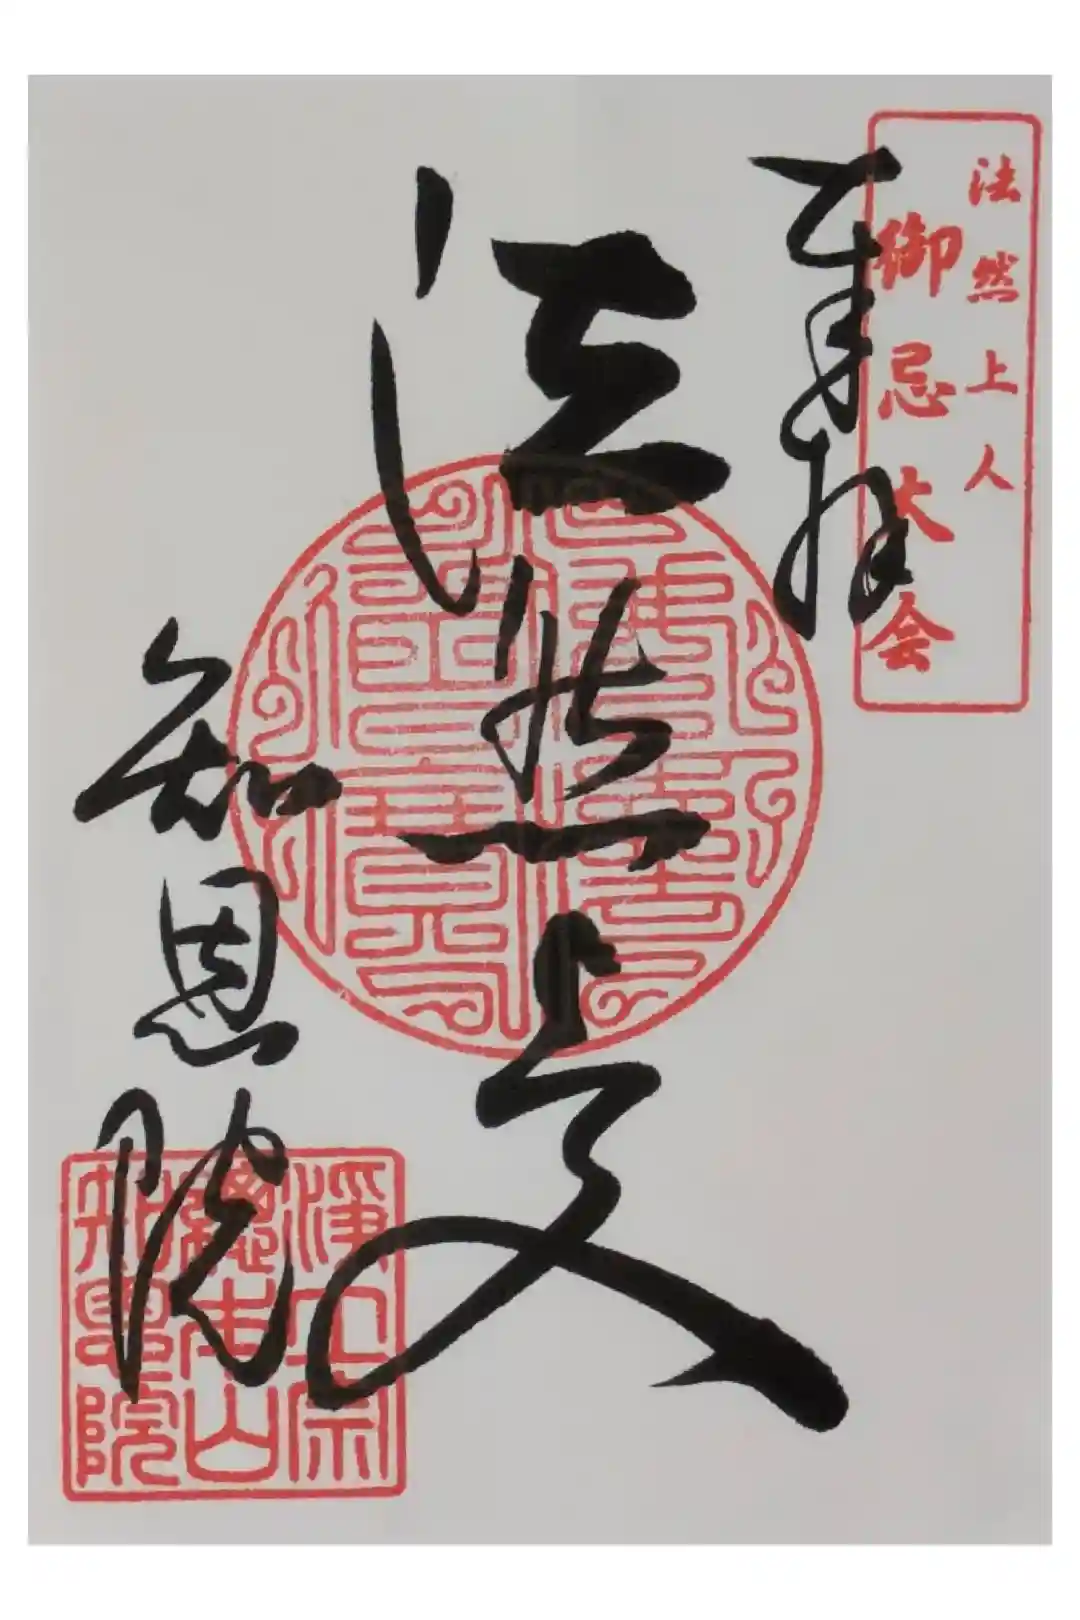 法然上人
御忌大会
奉拝
法然上人
知恩院
浄土宗
總本山
知恩院